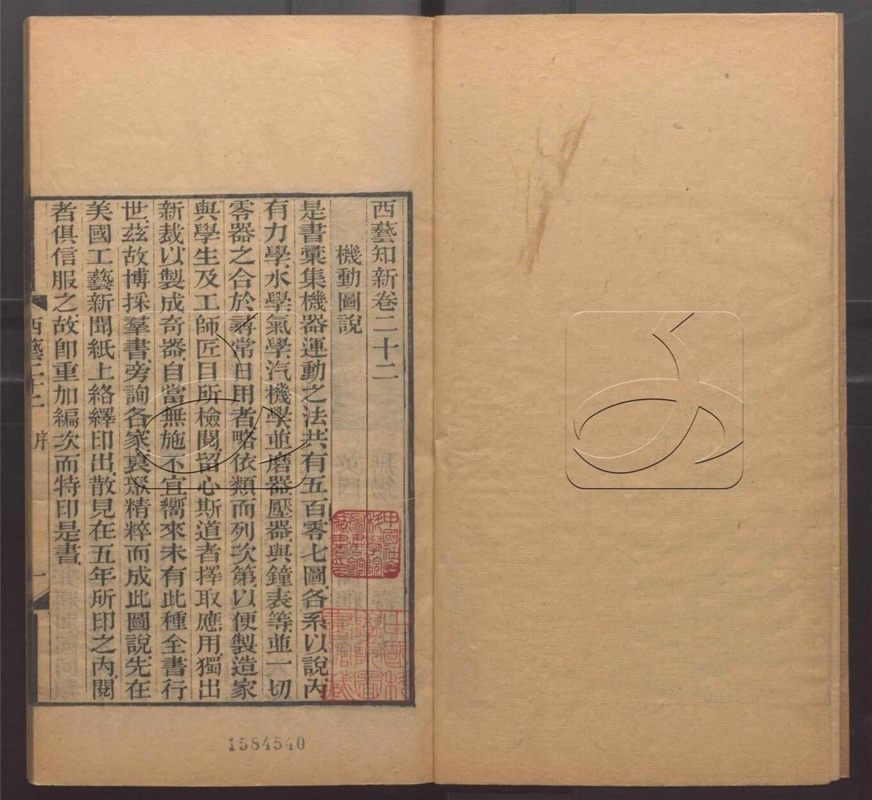 西藝知新卷二十二
機動圖說
是書彙集機器運動之法共有五百零七圖各系以說內
有力學水學氣學汽機學並磨器壓器與鐘表等並一切
零器之合於尋常日用者略依類而列次第以便製造家
與學生及工師匠目所檢閱留心斯道者擇取應用獨出
新裁以製成奇器自當無施不宜嚮來未有此種全書行
世茲故博採羣書旁詢各家裒聚精粹而成此圖說先在
美國工藝新聞紙上絡繹印出散見在五年所印之內閱
者俱信服之故即重加編次而特印是書
西藝二十二 序 一
1584540